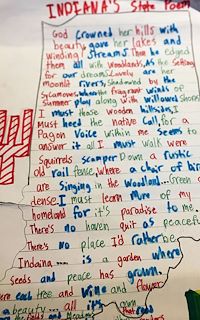 INDIANA'S State Poem
God crowned her hills with
beauty, gave her lakes and
winding streams, Then he edged
them all with woodlands, As the setting
for our dreams. Lovely are her
moonlit rivers, Shadowed by the
Sycamores, where the fragrant winds of
Summer play along with willowed Shores.
I must those wooden hillsides, I
Must heed the native Call, for a
Pagon Voice within me Seems to
answer it all. I Must walk were
Squirrels scamper Down a rustic
old rail fence, where a choir of birds
are Singing in the woodland.... Green and
dense. I must learn more of my
homeland for it's paradise to me,
There's no haven quit as peaceful
There's no place I'd rather be
Indiana.... is a garden where
seeds and peace has grown.
were each tree and vine and flower
a beauty... all it's own